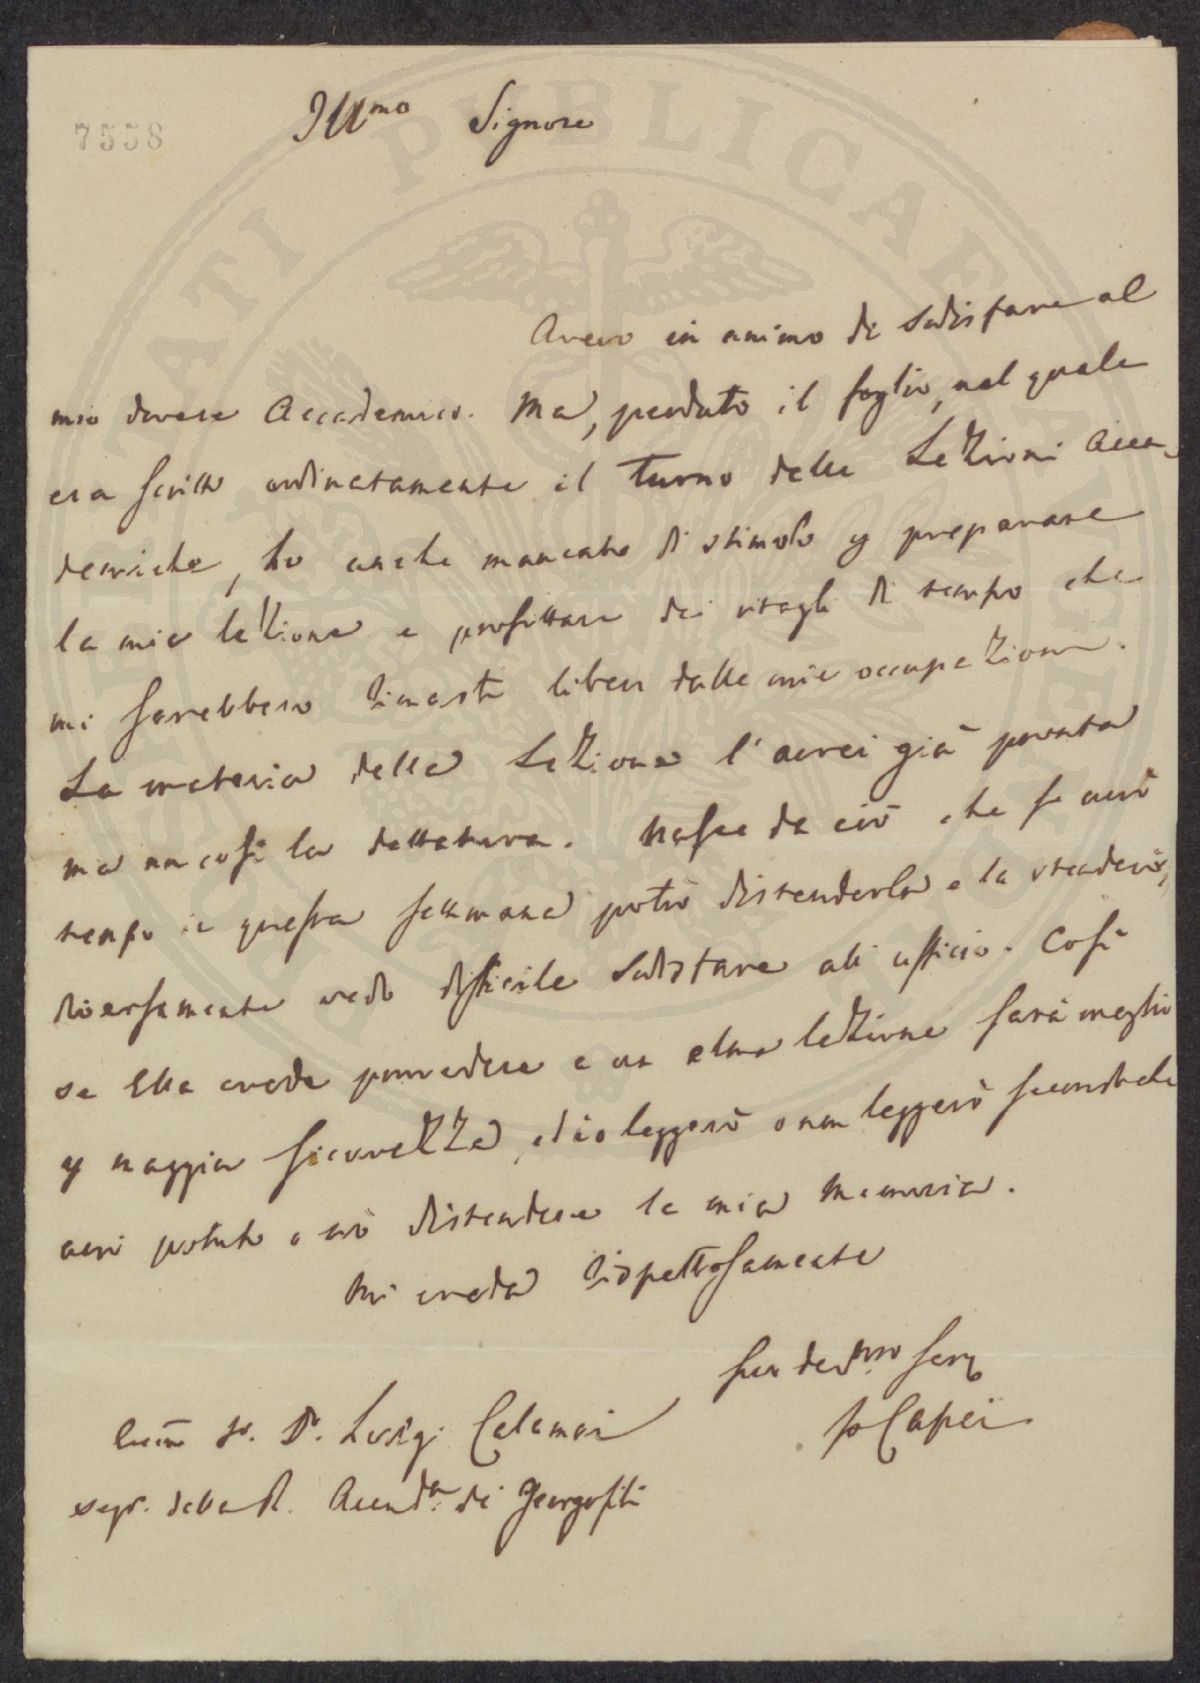 7558
Illmo Signore
Avevo in animo di sodisfare al
mio dovere Accademico. Ma, perduto il foglio, nel quale
era scritto ordinatamente il turno delle Lezioni Acca-
demiche, ho anche mancato di stimolo p preparare
la mia lezione e profittare dei ritagli di tempo che
mi sarebbero rimasti liberi dalle mie occupazioni.
La materia della Lezione l'avrei già pronta
ma non così la dettatura. Nasce da ciò che se avrò
tempo in questa settimana potrò distenderla e la stenderò,
diversamente vedo difficile sodisfare all'ufficio. Così
se Ella crede provvedere a un altra lezione sarà meglio
p maggior sicurezza, ed io leggerò o non leggerò secondoche
avrò potuto o nò distendere la mia Memoria.
Mi creda rispettosamente
suo devmo serv
P Capei
Sr. Dr. Luigi Calamai
segr. della R. Accada. dei Georgofili